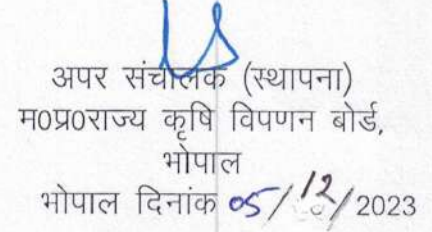 अपर संचालक (स्थापना)
म0प्र0राज्य कृषि विपणन बोर्ड,
भोपाल
भोपाल दिनांक 05/12/2023